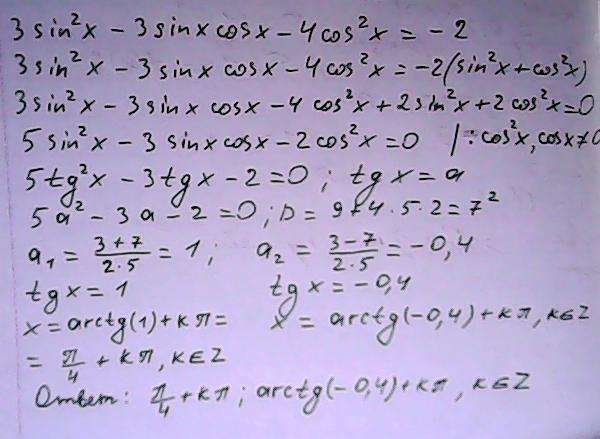 3 sin²x − 3 sin x cos x − 4 cos²x = −2
3 sin²x − 3 sin x cos x − 4 cos²x = −2(sin²x + cos²x)
3 sin²x − 3 sin x cos x − 4 cos²x + 2 sin²x + 2 cos²x = 0
5 sin²x − 3 sin x cos x − 2 cos²x = 0 | : cos²x, cos x ≠ 0
5 tg²x − 3 tg x − 2 = 0 ; tg x = a
5a² − 3a − 2 = 0 ; D = 9 + 4 · 5 · 2 = 7²
a₁ = (3+7)/(2·5) = 1 ; a₂ = (3−7)/(2·5) = −0,4
tg x = 1 tg x = −0,4
x = arctg(1) + кπ = x = arctg(−0,4) + кπ, к∈Z
= π/4 + кπ, к∈Z
Ответ: π/4 + кπ ; arctg(−0,4) + кπ, к∈Z